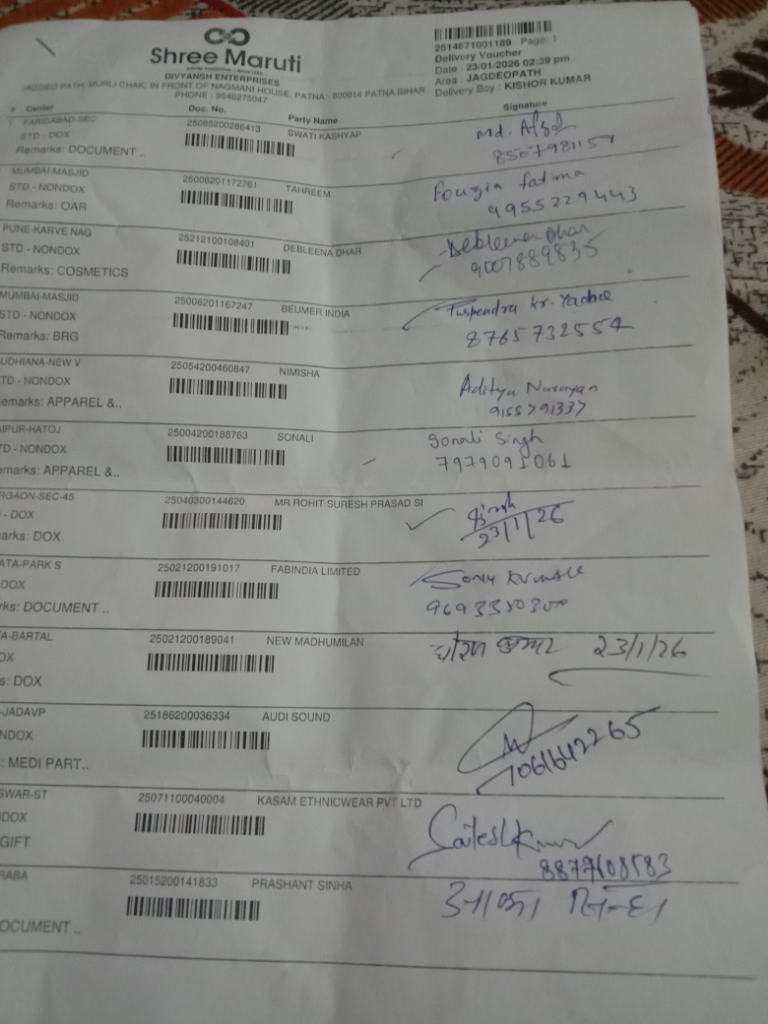 Shree Maruti
DIVYANSH ENTERPRISES
JAGDEO PATH, MURLI CHAK, IN FRONT OF NAGMANI HOUSE, PATNA - 800014 PATNA BIHAR
PHONE : 9546275047
2514671001189 Page: 1
Delivery Voucher
Date : 23/01/2026 02:39 pm
Area : JAGDEOPATH
Delivery Boy : KISHOR KUMAR
# Center Doc. No. Party Name Signature
1 FARIDABAD-SEC 25085200286413 SWATI KASHYAP Md.
STD - DOX
Remarks: DOCUMENT ..
MUMBAI-MASJID 25006201172761 TAHREEM Fouzia fatima
STD - NONDOX 9955229443
Remarks: OAR
PUNE-KARVE NAG 25212100108401 DEBLEENA DHAR Debleena Dhar
STD - NONDOX 9007889835
Remarks: COSMETICS
MUMBAI-MASJID 25006201167247 BEUMER INDIA Kr. Yadav
STD - NONDOX 8765732554
Remarks: BRG
UDHIANA-NEW V 25054200460847 NIMISHA Aditya Narayan
TD - NONDOX 9155791337
emarks: APPAREL &..
IPUR-HATOJ 25004200188763 SONALI Sonali Singh
TD - NONDOX 7979095061
emarks: APPAREL &..
RGAON-SEC-45 25040300144620 MR ROHIT SURESH PRASAD SI
- DOX 23/1/26
arks: DOX
ATA-PARK S 25021200191017 FABINDIA LIMITED
DOX
rks: DOCUMENT ..
A-BARTAL 25021200189041 NEW MADHUMILAN 23/1/26
OX
s: DOX
-JADAVP 25186200036334 AUDI SOUND
NDOX 7061642265
: MEDI PART..
SWAR-ST 25071100040004 KASAM ETHNICWEAR PVT LTD
DOX
GIFT
RABA 25015200141833 PRASHANT SINHA
OCUMENT ..